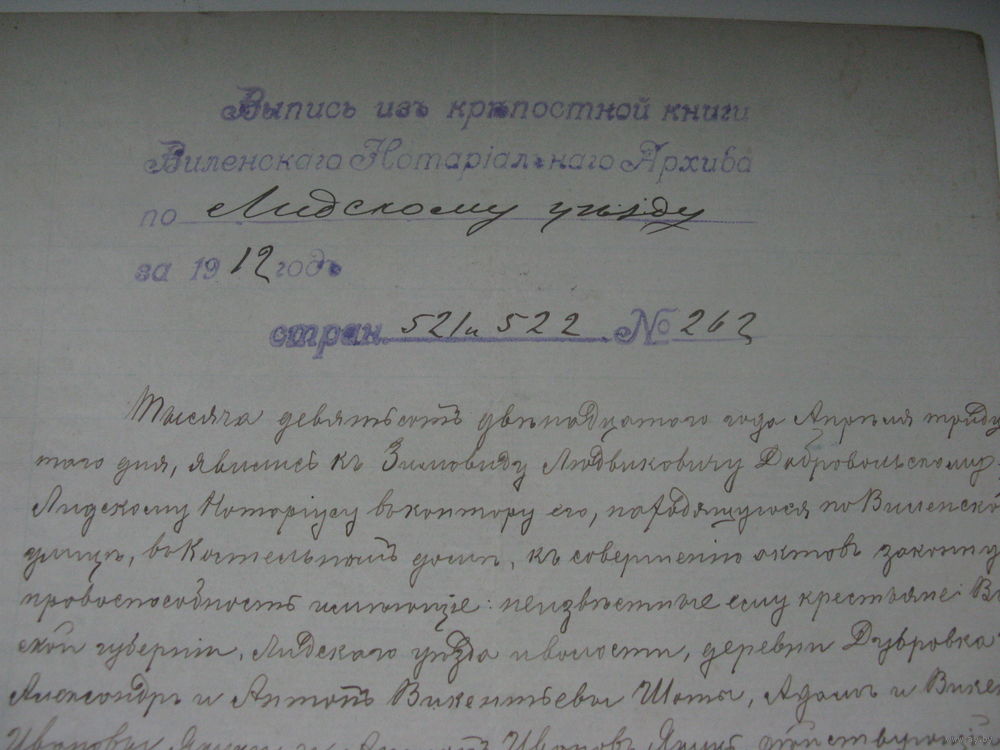 Выпись изъ крѣпостной книги
Виленскаго Нотаріальнаго Архива
по Лидскому уѣзду
за 1912 годъ
стран. 521 и 522 № 262
Тысяча девятьсотъ двѣнадцатого года Апрѣля тридца
таго дня, явились къ Зимовиду Людвиковичу Добровольскому
Лидскому Нотаріусу въ контору его, находящуюся по Виленско
улицѣ, въ Костельномъ домѣ, къ совершенію актовъ законну
правоспособность имѣющіе: неизвѣстные ему крестьяне: Ви
ской губерніи, Лидскаго уѣзда и волости, деревни Дубровка
Александръ и Антонъ Викентьевы Шоты, Адамъ и Викен
Ивановы